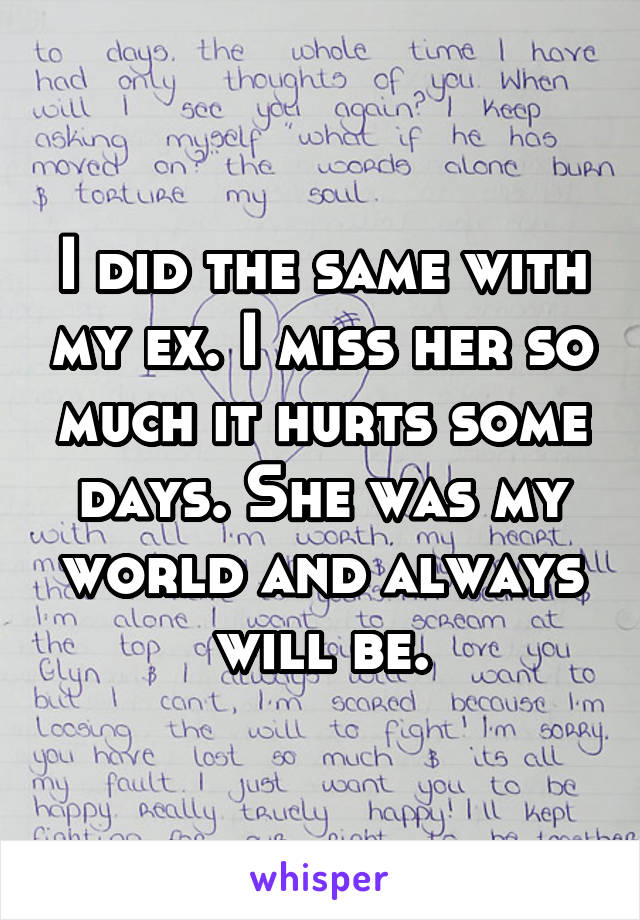 to days. the whole time I have
had only thoughts of you. When
will I see you again? I keep
asking myself "what if he has
moved on?" the words alone burn
& torture my soul.
I DID THE SAME WITH
MY EX. I MISS HER SO
MUCH IT HURTS SOME
DAYS. SHE WAS MY
with all I'm worth, my heart,
WORLD AND ALWAYS
All
I'm alone. I want to scream at
WILL BE.
the top love you
Glyn & I always want to
but I can't, I'm scared because I'm
Loosing the will to fight! I'm sorry.
you have lost so much & its all
my fault. I just want you to be
happy. Really truely happy! I'll kept
fighting for our right to be together
whisper